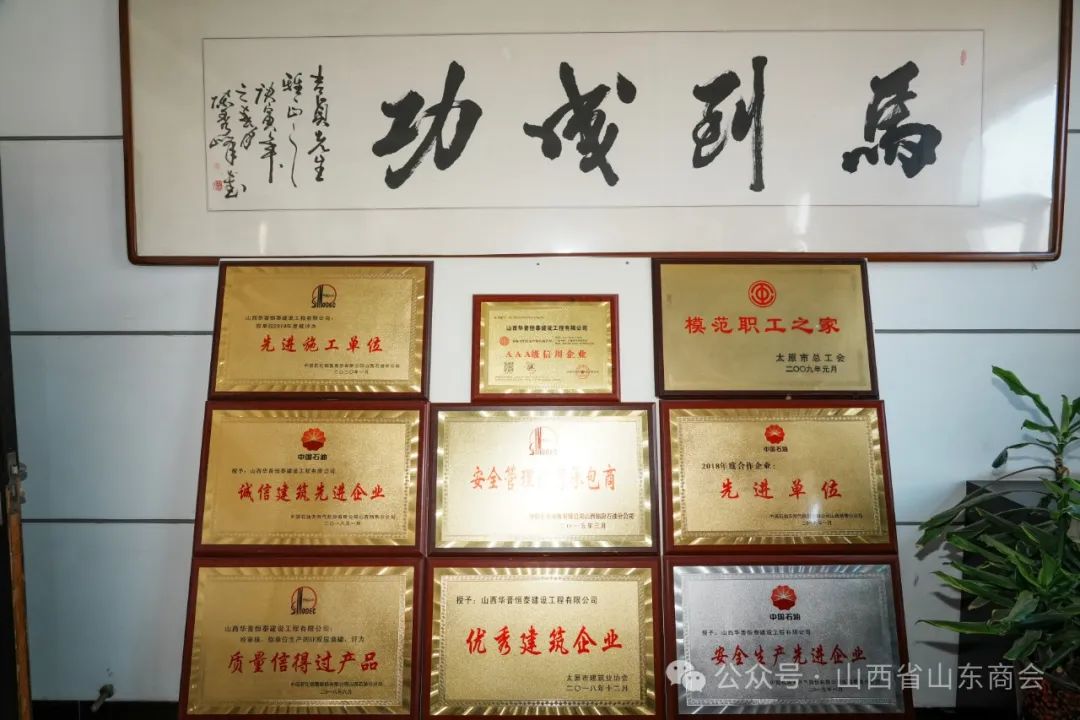 馬到成功
吉貞先生
雅正
庚寅年
SINOPEC
山西华晋恒泰建设工程有限公司：
先进施工单位
二〇二〇年一月
山西华晋恒泰建设工程有限公司
AAA级信用企业
模范职工之家
太原市总工会
二〇〇九年元月
中国石油
授予：山西华晋恒泰建设工程有限公司
诚信建筑先进企业
二〇一八年一月
安全管理
承包商
二〇一五年三月
中国石油
2018年度合作企业：
先进单位
山西华晋恒泰建设工程有限公司：
质量信得过产品
二〇一八年六月
授予：山西华晋恒泰建设工程有限公司
优秀建筑企业
太原市建筑业协会
二〇一八年十二月
中国石油
授予：山西华晋恒泰建设工程有限公司
安全生产先进企业
公众号·山西省山东商会